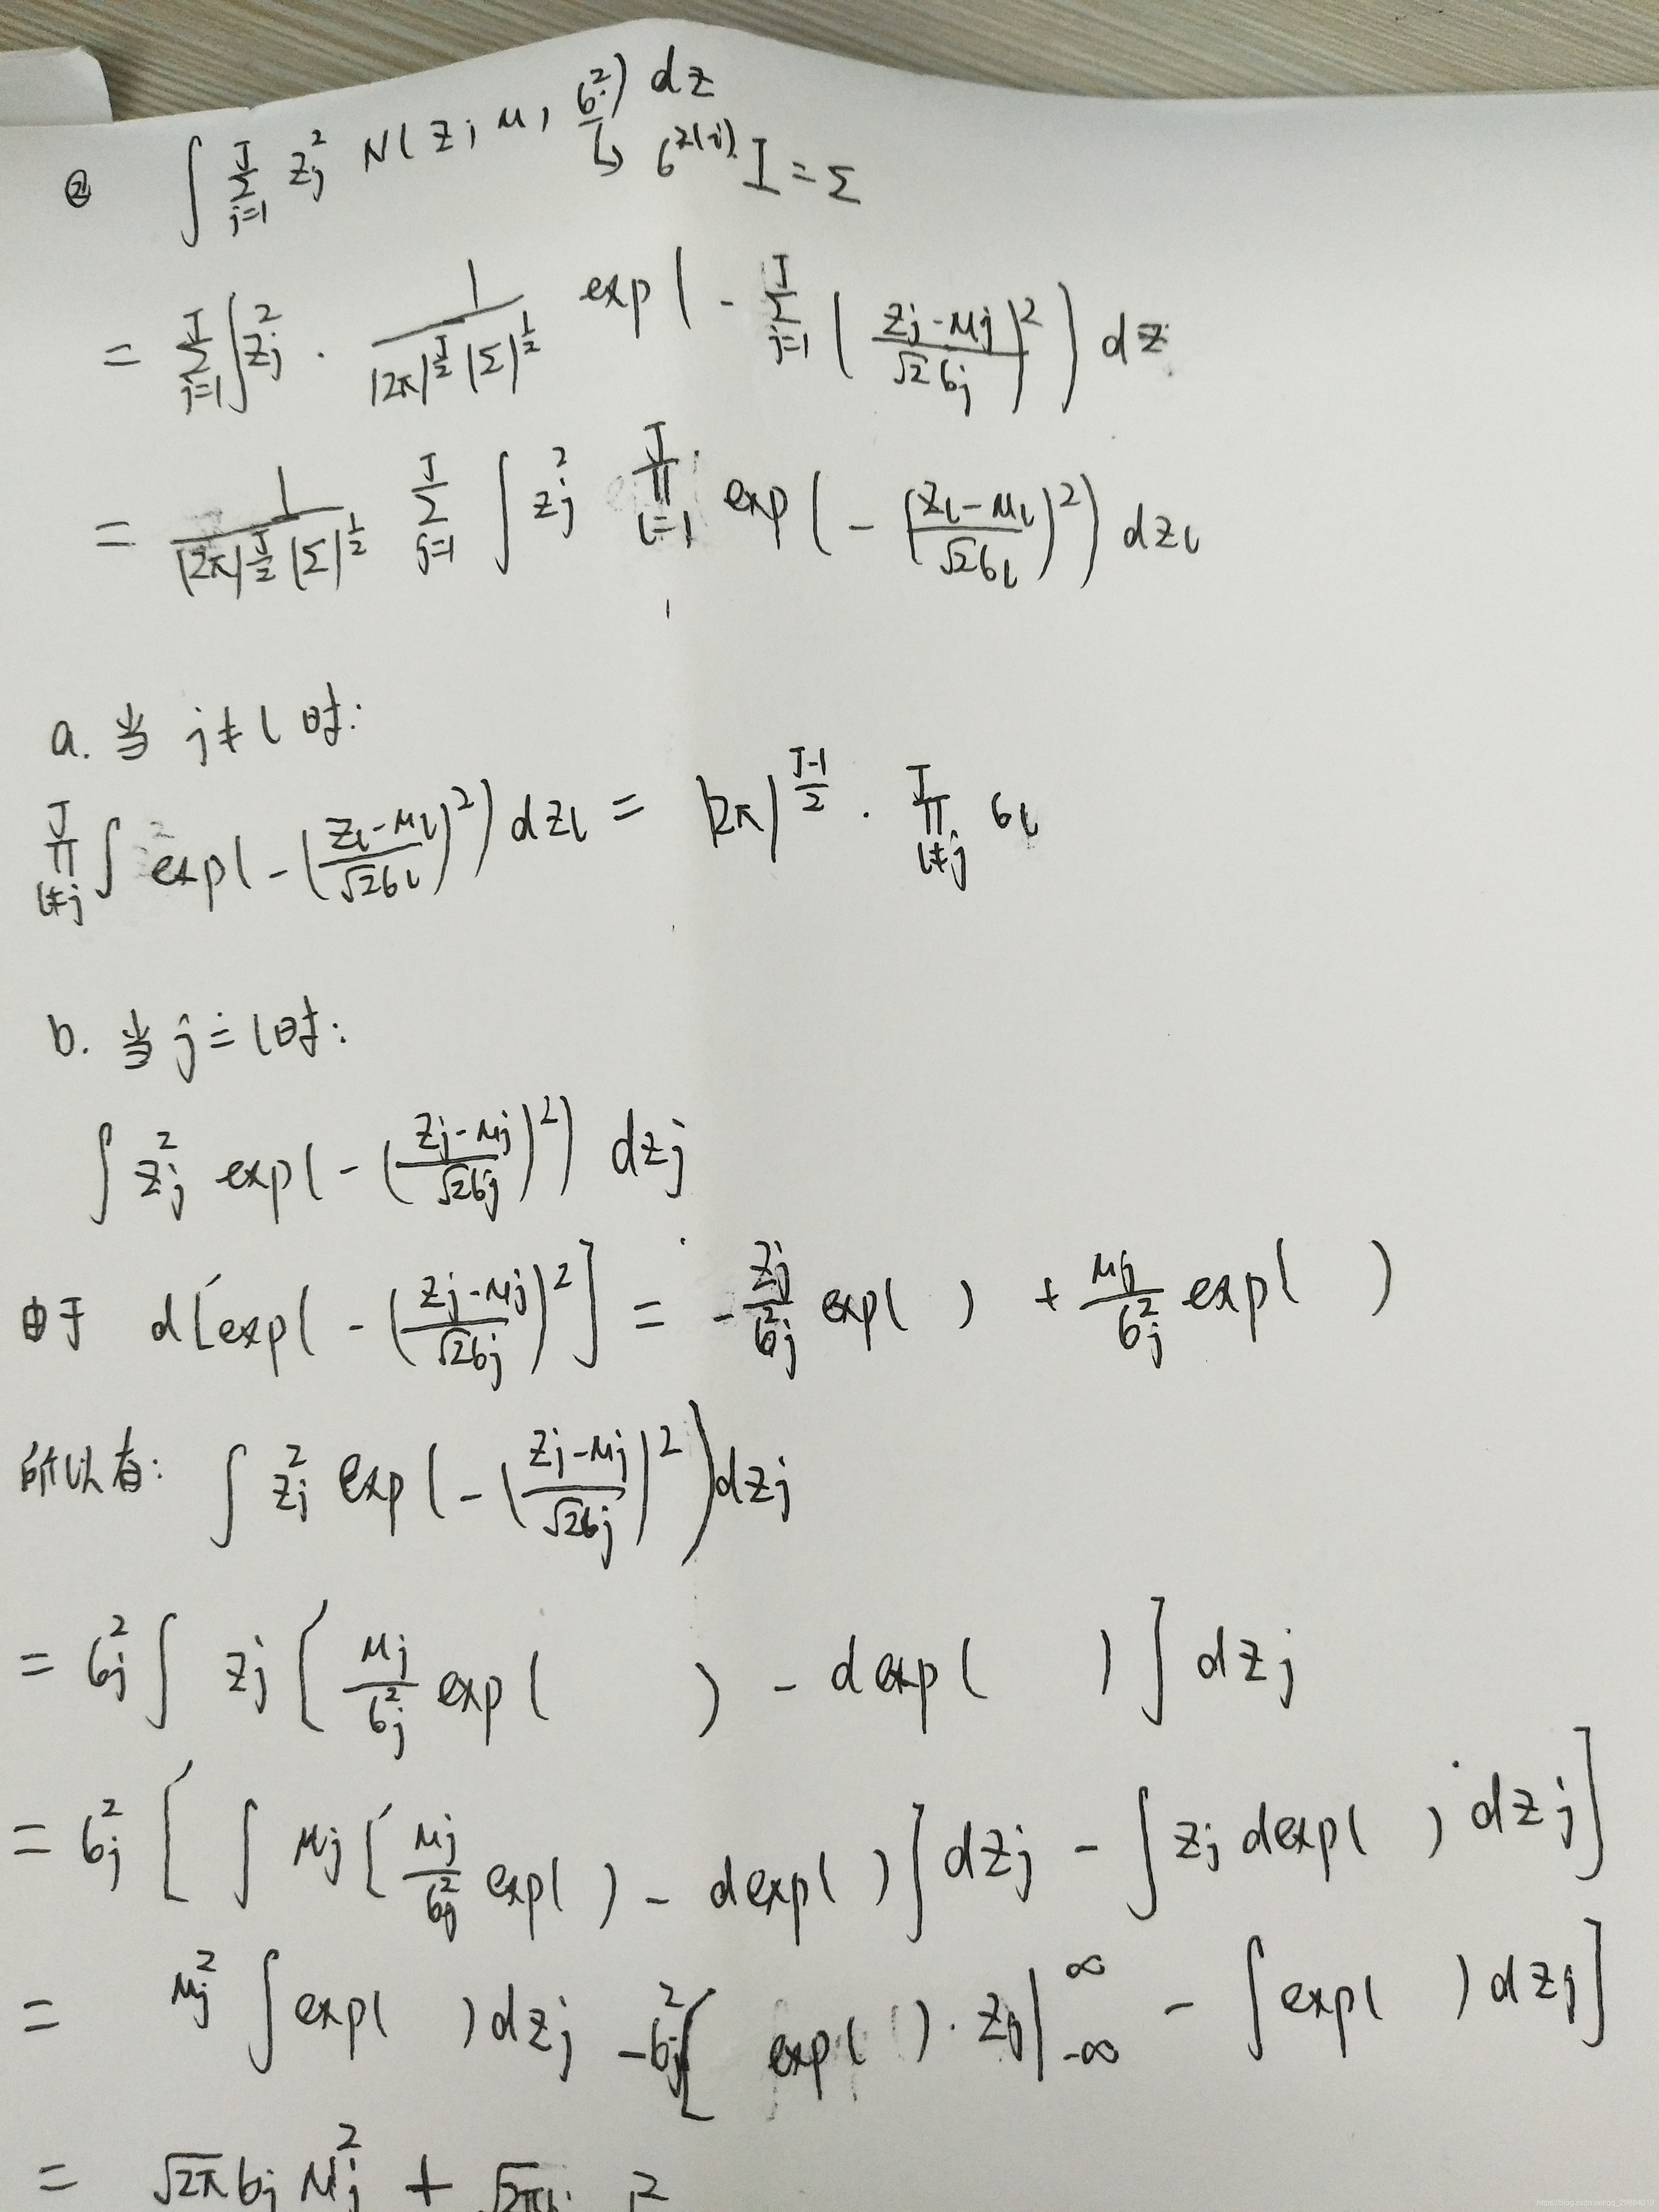 ② ∫ Σ_{j=1}^{J} z_j^2 N(z; μ, σ^2) dz
↳ σ^{2(i)} I = Σ
= Σ_{j=1}^{J} ∫ z_j^2 · 1/((2π)^{J/2} |Σ|^{1/2}) exp(- Σ_{j=1}^{J} ((z_j-μ_j)/(√2 σ_j))^2) dz
= 1/((2π)^{J/2} |Σ|^{1/2}) Σ_{j=1}^{J} ∫ z_j^2 ∏_{l=1}^{J} exp(- ((z_l-μ_l)/(√2 σ_l))^2) dz_l
a. 当 j≠l 时:
∏_{l≠j}^{J} ∫ exp(- ((z_l-μ_l)/(√2 σ_l))^2) dz_l = (2π)^{(J-1)/2} · ∏_{l≠j}^{J} σ_l
b. 当 j=l 时:
∫ z_j^2 exp(- ((z_j-μ_j)/(√2 σ_j))^2) dz_j
由于 d[exp(- ((z_j-μ_j)/(√2 σ_j))^2] = - z_j/σ_j^2 exp( ) + μ_j/σ_j^2 exp( )
所以有: ∫ z_j^2 exp(- ((z_j-μ_j)/(√2 σ_j))^2) dz_j
= σ_j^2 ∫ z_j [μ_j/σ_j^2 exp( ) - d exp( )] dz_j
= σ_j^2 [∫ μ_j [μ_j/σ_j^2 exp( ) - d exp( )] dz_j - ∫ z_j d exp( ) dz_j]
= μ_j^2 ∫ exp( ) dz_j - σ_j^2 [exp( ) · z_j |_{-∞}^{∞} - ∫ exp( ) dz_j]
= √2π σ_j μ_j^2 + √2π